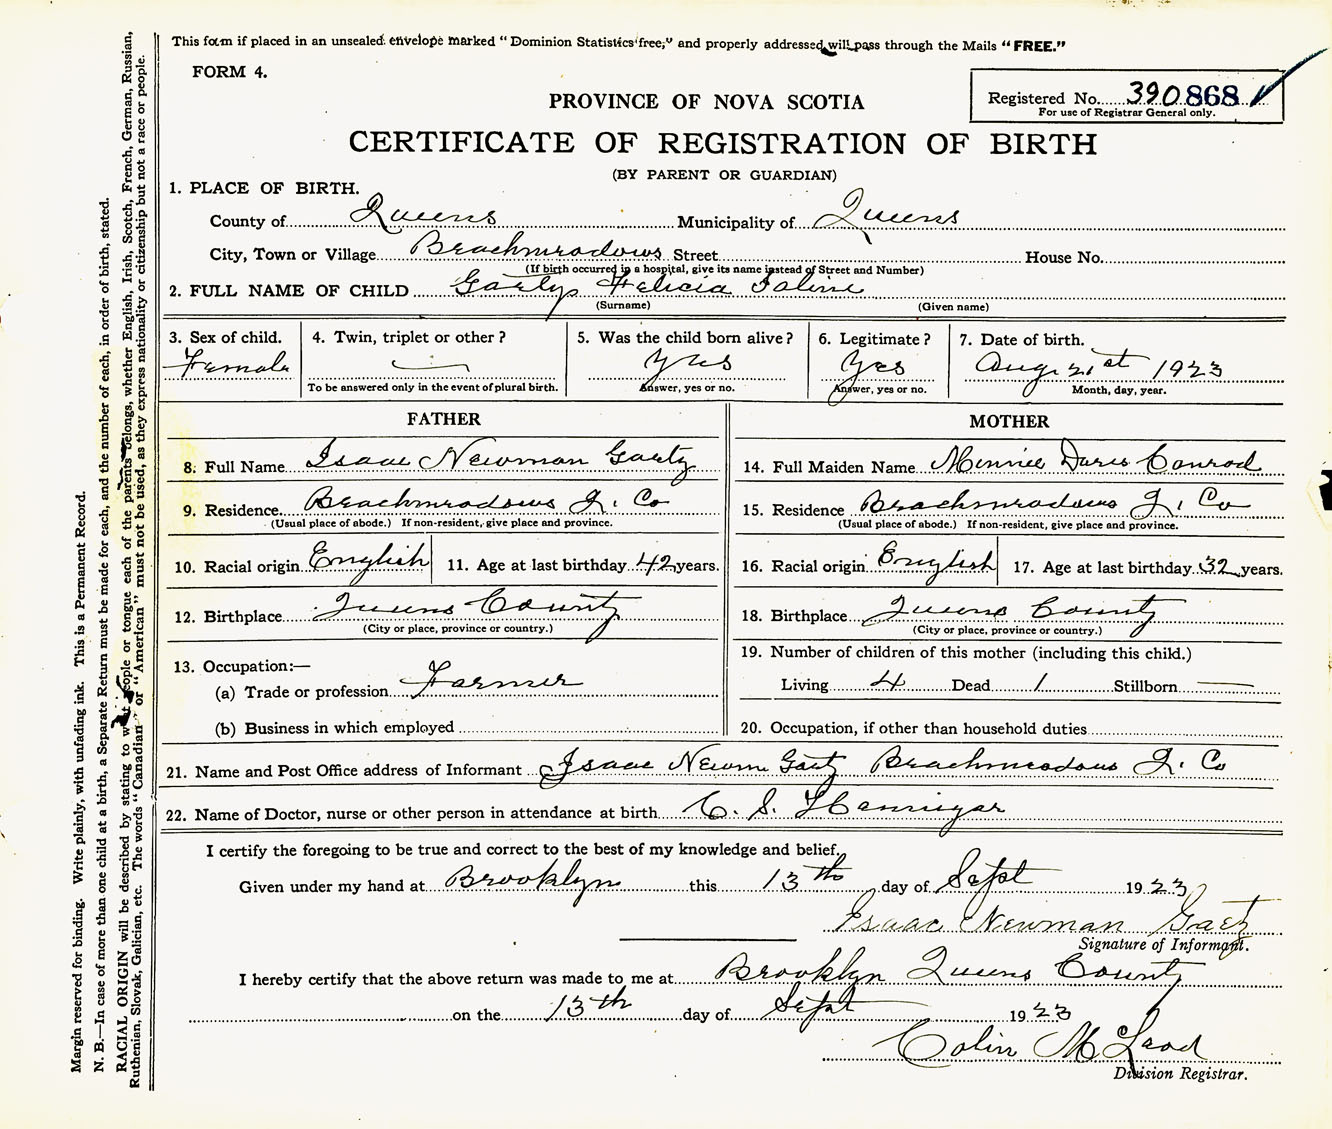 This form if placed in an unsealed envelope marked "Dominion Statistics free," and properly addressed will pass through the Mails "FREE."
FORM 4.
Registered No. 390868
For use of Registrar General only.
PROVINCE OF NOVA SCOTIA
CERTIFICATE OF REGISTRATION OF BIRTH
(BY PARENT OR GUARDIAN)
1. PLACE OF BIRTH.
County of Queens Municipality of Queens
City, Town or Village Beachmeadows Street House No.
(If birth occurred in a hospital, give its name instead of Street and Number)
2. FULL NAME OF CHILD Felicia
(Surname) (Given name)
3. Sex of child. 4. Twin, triplet or other? 5. Was the child born alive? 6. Legitimate? 7. Date of birth.
Female — Yes Yes Aug 21st 1923
To be answered only in the event of plural birth. Answer, yes or no. Answer, yes or no. Month, day, year.
FATHER MOTHER
8. Full Name Isaac Newman Gaetz 14. Full Maiden Name Minnie Conrod
9. Residence Beachmeadows Q. Co 15. Residence Beachmeadows Q. Co
(Usual place of abode.) If non-resident, give place and province. (Usual place of abode.) If non-resident, give place and province.
10. Racial origin English 11. Age at last birthday 42 years. 16. Racial origin English 17. Age at last birthday 32 years.
12. Birthplace Queens County 18. Birthplace Queens County
(City or place, province or country.) (City or place, province or country.)
13. Occupation:— 19. Number of children of this mother (including this child.)
(a) Trade or profession Farmer Living 4 Dead 1 Stillborn —
(b) Business in which employed 20. Occupation, if other than household duties
21. Name and Post Office address of Informant Isaac Gaetz Beachmeadows Q. Co
22. Name of Doctor, nurse or other person in attendance at birth C. S. Hennigar
I certify the foregoing to be true and correct to the best of my knowledge and belief.
Given under my hand at Brooklyn this 13th day of Sept 1923
Isaac Newman Gaetz
Signature of Informant.
I hereby certify that the above return was made to me at Brooklyn Queens County
on the 13th day of Sept 1923
Colin McLeod
Division Registrar.
Margin reserved for binding. Write plainly, with unfading ink. This is a Permanent Record.
N. B.—In case of more than one child at a birth, a Separate Return must be made for each, and the number of each, in order of birth, stated.
RACIAL ORIGIN will be described by stating to what people or tongue each of the parents belongs, whether English, Irish, Scotch, French, German, Russian,
Ruthenian, Slovak, Galician, etc. The words "Canadian" or "American" must not be used, as they express nationality or citizenship but not a race or people.